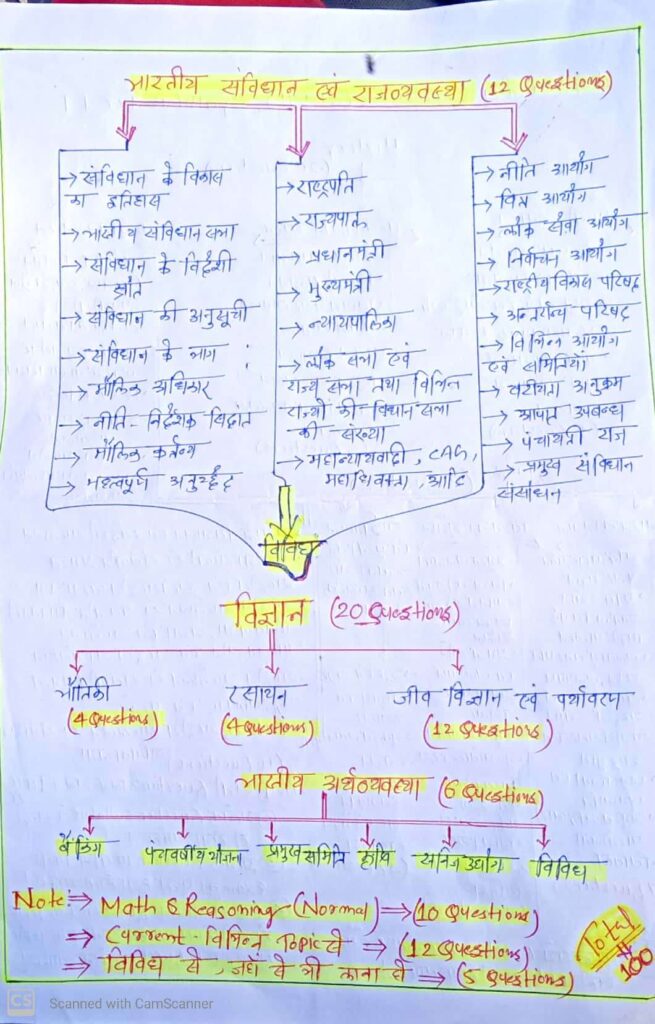 भारतीय संविधान एवं राजव्यवस्था (12 Questions)
→ संविधान के विकास
का इतिहास
→ भारतीय संविधान सभा
→ संविधान के विदेशी
स्रोत
→ संविधान की अनुसूची
→ संविधान के भाग
→ मौलिक अधिकार
→ नीति-निर्देशक सिद्धांत
→ मौलिक कर्तव्य
→ महत्वपूर्ण अनुच्छेद
→ राष्ट्रपति
→ राज्यपाल
→ प्रधानमंत्री
→ मुख्यमंत्री
→ न्यायपालिका
→ लोक सभा एवं
राज्य सभा तथा विभिन्न
राज्यों की विधान सभा
की संख्या
→ महान्यायवादी, CAG,
महाधिवक्ता, आदि
→ नीति आयोग
→ वित्त आयोग
→ लोक सेवा आयोग
→ निर्वाचन आयोग
→ राष्ट्रीय विकास परिषद
→ अन्तर्राज्य परिषद
→ विभिन्न आयोग
एवं समितियाँ
→ वरीयता अनुक्रम
→ आपात उपबन्ध
→ पंचायती राज
→ प्रमुख संविधान
संसोधन
विविध
विज्ञान (20 Questions)
भौतिकी
(4 Questions)
रसायन
(4 Questions)
जीव विज्ञान एवं पर्यावरण
(12 Questions)
भारतीय अर्थव्यवस्था (6 Questions)
बैंकिंग पंचवर्षीय योजना प्रमुख समिति कृषि खनिज उद्योग विविध
Note ⇒ Math & Reasoning-(Normal) ⇒ (10 Questions)
⇒ Current-विभिन्न Topic से ⇒ (12 Questions)
⇒ विविध से, जहाँ से भी लाना से ⇒ (5 Questions)
Total
# 100
CS Scanned with CamScanner